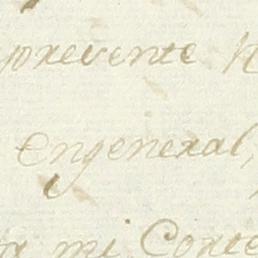 presente
engeneral,
mi Corte